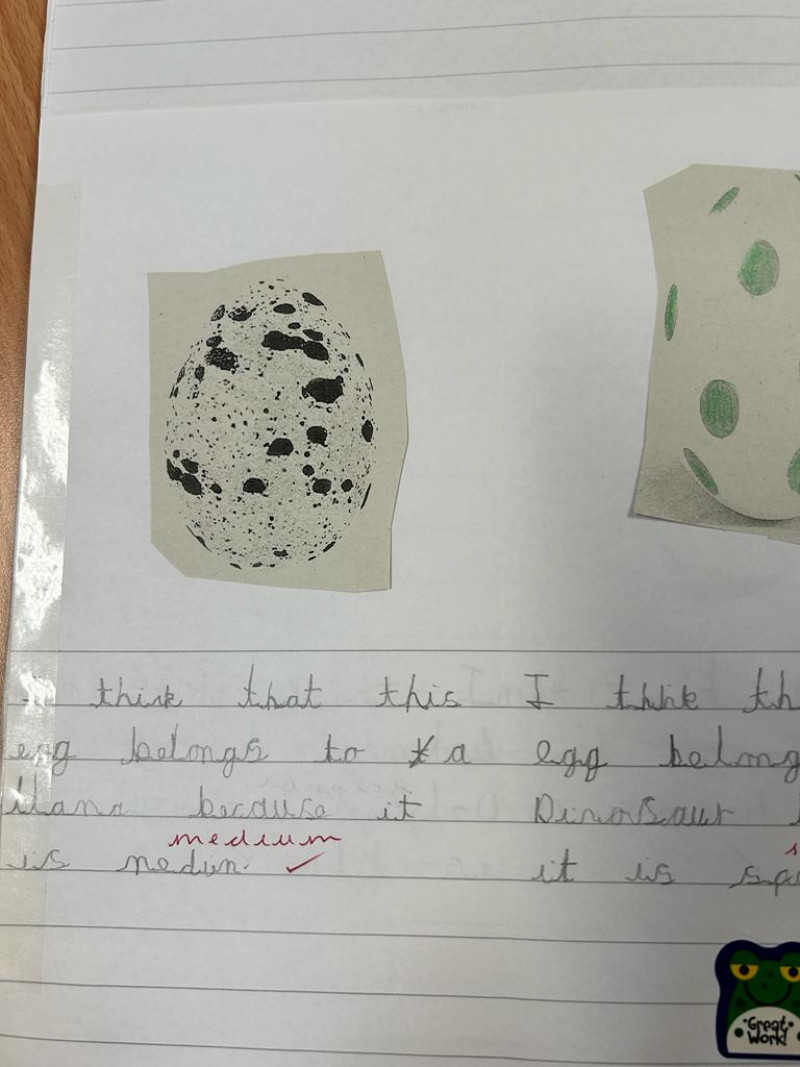 I think that this
egg belongs to a
llana because it
medium
is nedum. ✓
I thhk th
egg belong
Dinosaur
it is
Great
Work!